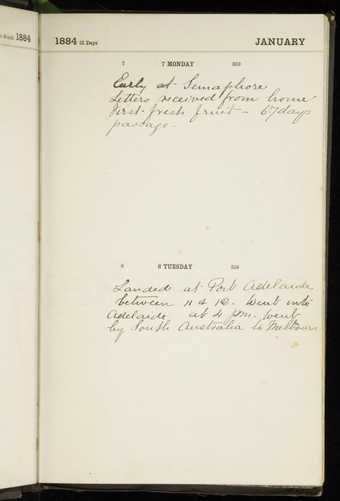 1884
1884 31 Days JANUARY
7 7 MONDAY 359
Early at Semaphore
Letters received from home
First fresh fruit – 67 days
passage –
8 8 TUESDAY 358
Landed at Port Adelaide
between 11 & 12. Went into
Adelaide, at 4 pm. went
by South Australia to Melbourn